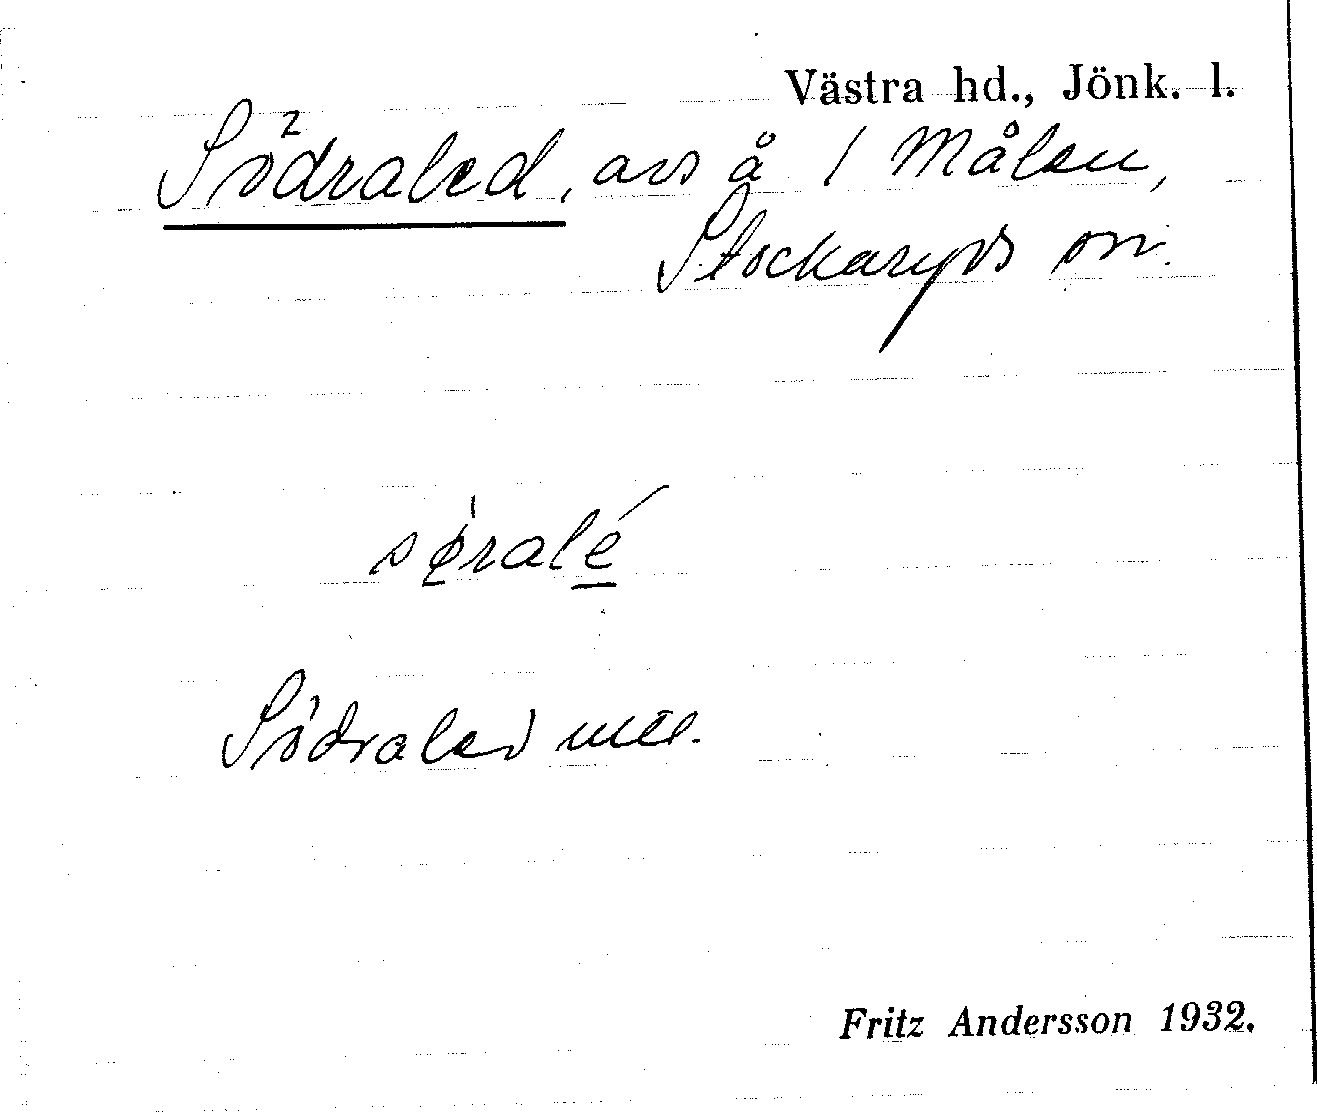 Västra hd., Jönk. l.
Södraled, avs å / Målen,
Stockaryds sn.
sǿralé
Södraled mell.
Fritz Andersson 1932.